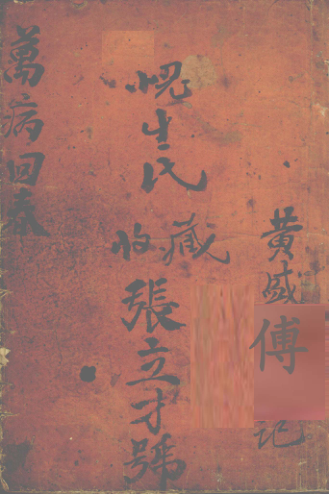 黃盛傅記
愧生氏
收藏
張立才號
萬病回春